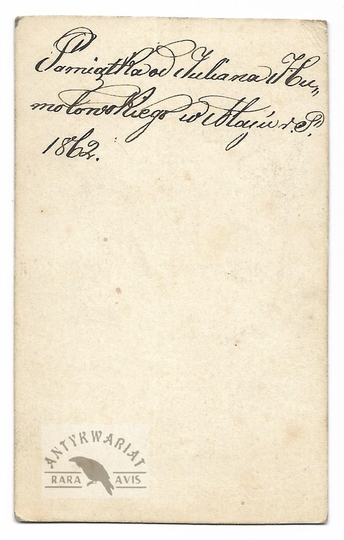 Pamiątka od Juliana Hu„
mołowskiego w Maju r. P.
1862.
ANTYKWARIAT
RARA AVIS